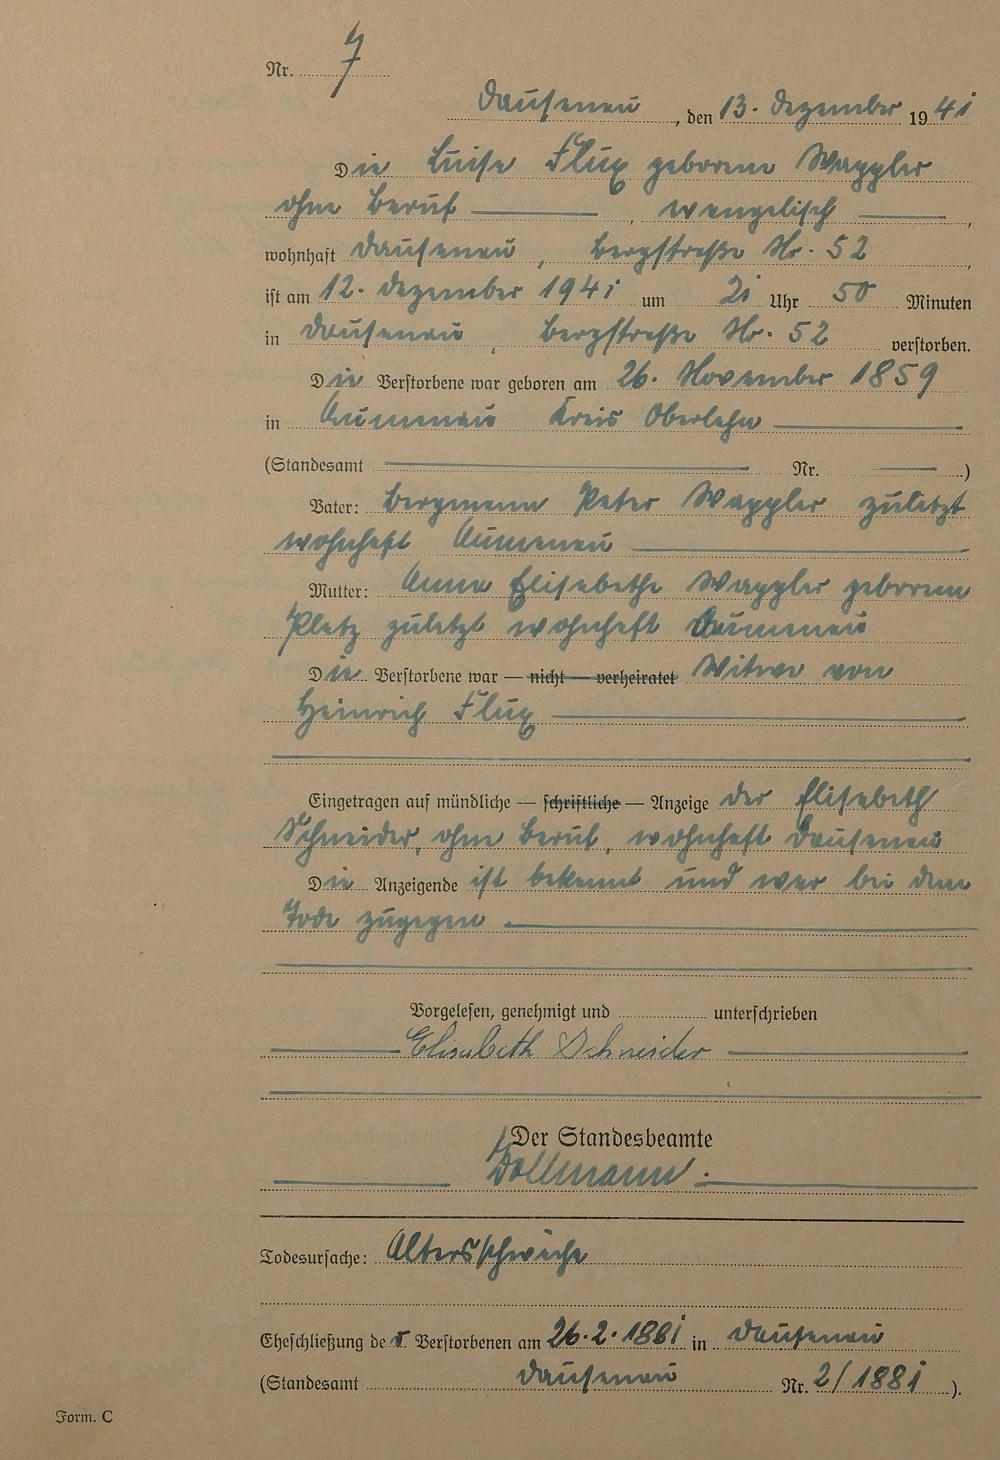 Nr. 7
Dausenau, den 13. Dezember 1941
Die Luise Flux geborene Wappler
ohne Beruf —, evangelisch —,
wohnhaft Dausenau, Bergstraße Nr. 52,
ist am 12. Dezember 1941 um 21 Uhr 50 Minuten
in Dausenau, Bergstraße Nr. 52 verstorben.
Die Verstorbene war geboren am 26. November 1859
in Aumenau Kreis Oberlahn —
(Standesamt — Nr. —)
Vater: Bergmann Peter Wappler zuletzt
wohnhaft Aumenau —
Mutter: Anna Elisabethe Wappler geborene
Platz zuletzt wohnhaft Aumenau
Die Verstorbene war — nicht — verheiratet Witwe von
Heinrich Flux —
Eingetragen auf mündliche — schriftliche — Anzeige der Elisabeth
Schneider, ohne Beruf, wohnhaft Dausenau
Die Anzeigende ist bekannt und war bei dem
Tode zugegen —
Vorgelesen, genehmigt und unterschrieben
Elisabeth Schneider
Der Standesbeamte
Dollmann.
Todesursache: Altersschwäche
Eheschließung der Verstorbenen am 26.2.1881 in Dausenau
(Standesamt Dausenau Nr. 2/1881).
Form. C